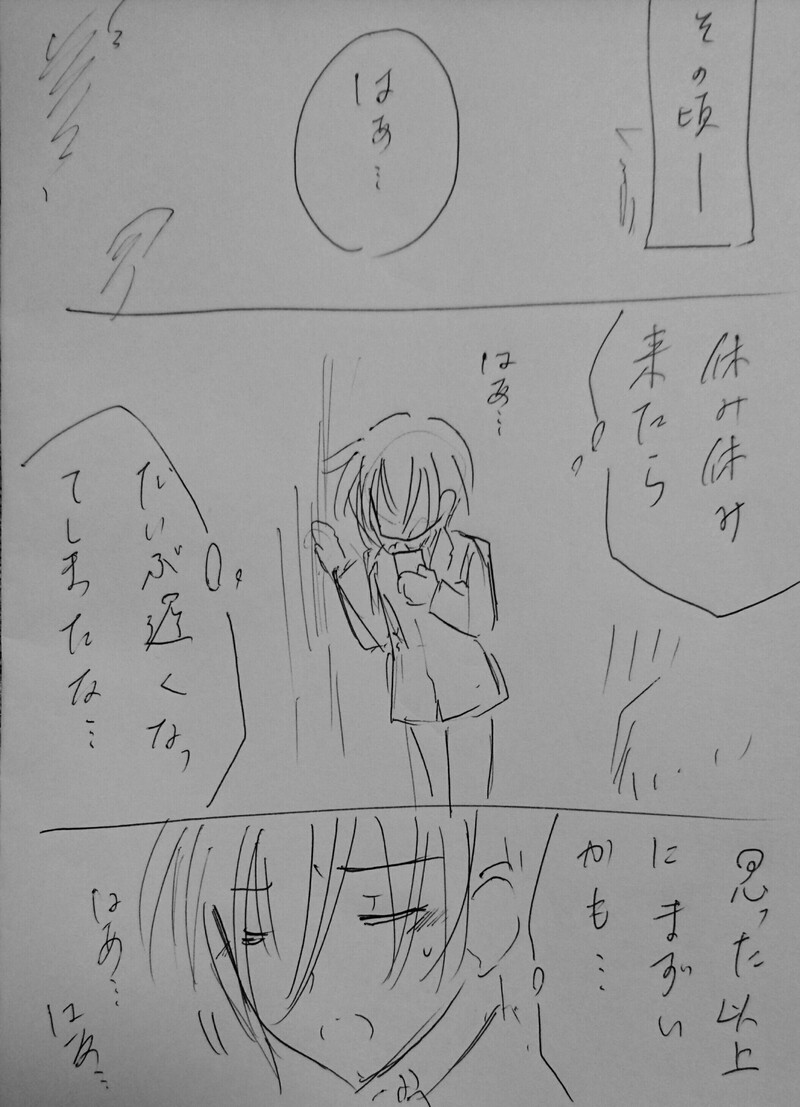 その頃ー
はあ…
休み休み
来たら
はあ…
だいぶ遅くなっ
てしまたな…
思った以上
にまずい
かも…
はあ…
はあ…